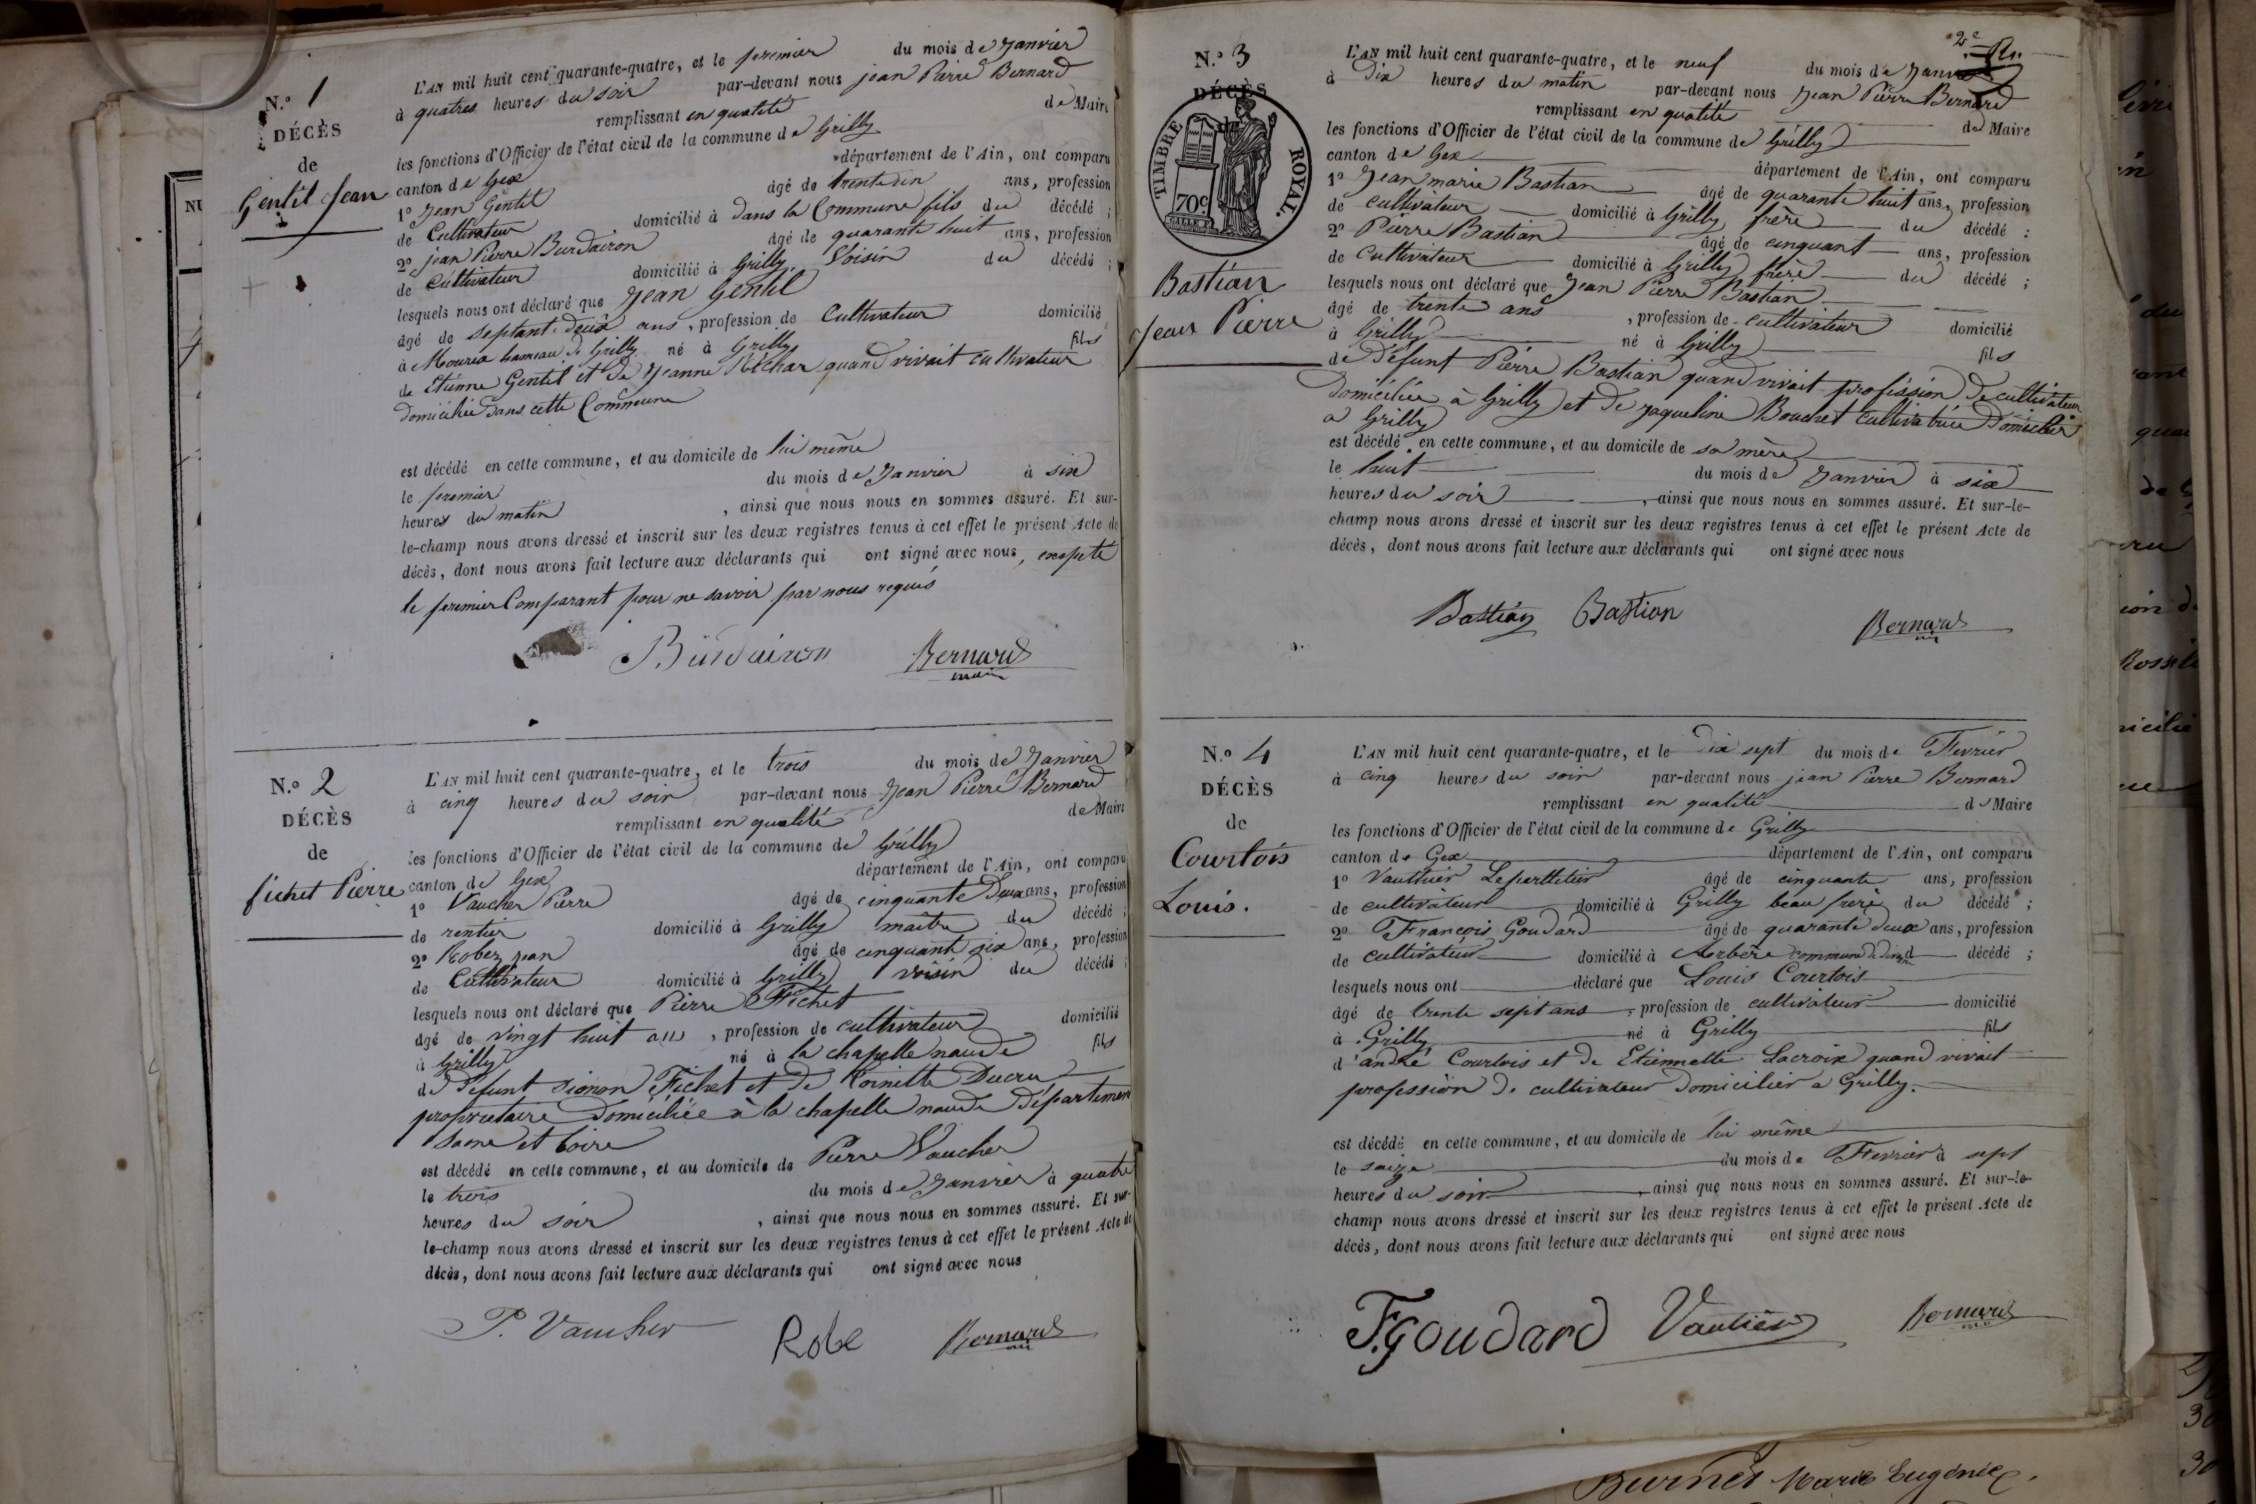 N.o 1
DÉCÈS
de
Gentil Jean
L'AN mil huit cent quarante-quatre, et le premier du mois de Janvier
à quatres heures du soir par-devant nous jean Pierre Bernard
remplissant en qualité de Maire
les fonctions d'Officier de l'état civil de la commune de Grilly
canton de Gex département de l'Ain, ont comparu
1o Jean Gentil âgé de trente un ans, profession
de Cultivateur domicilié à dans la Commune fils du décédé ;
2o jean Pierre Burdairon âgé de quarante huit ans, profession
de Cultivateur domicilié à Grilly Voisin du décédé ;
lesquels nous ont déclaré que Jean Gentil
âgé de septante deux ans, profession de Cultivateur domicilié
à Mourex hameau de Grilly né à Grilly fils
de Etienne Gentil et de Jeanne quand vivait cultivateur
domiciliée dans cette Commune
est décédé en cette commune, et au domicile de lui même
le premier du mois de Janvier à six
heures du matin, ainsi que nous nous en sommes assuré. Et sur-
le-champ nous avons dressé et inscrit sur les deux registres tenus à cet effet le présent Acte de
décès, dont nous avons fait lecture aux déclarants qui ont signé avec nous, exepté
le premier Comparant pour ne savoir par nous requis
Burdairon Bernard
maire
N.o 2
DÉCÈS
de
fichet Pierre
L'AN mil huit cent quarante-quatre, et le trois du mois de Janvier
à cinq heures du soir par-devant nous Jean Pierre Bernard
remplissant en qualité de Maire
les fonctions d'Officier de l'état civil de la commune de Grilly
canton de Gex département de l'Ain, ont comparu
1o Vaucher Pierre âgé de cinquante Deux ans, profession
de rentier domicilié à Grilly maître du décédé ;
2o Robez jean âgé de cinquant six ans, profession
de Cultivateur domicilié à Grilly voisin du décédé ;
lesquels nous ont déclaré que Pierre Fichet
âgé de vingt huit ans, profession de cultivateur domicilié
à Grilly né à la chapelle naude fils
de Défunt Simon Fichet et de Toinette Ducru
propriétaire Domiciliée à la chapelle naude Département
Saone et Loire
est décédé en cette commune, et au domicile de Pierre Vaucher
le trois du mois de Janvier à quatre
heures du soir, ainsi que nous nous en sommes assuré. Et sur-
le-champ nous avons dressé et inscrit sur les deux registres tenus à cet effet le présent Acte de
décès, dont nous avons fait lecture aux déclarants qui ont signé avec nous
P. Vaucher Robe Bernard
2e
N.o 3
DÉCÈS
TIMBRE ROYAL.
70c
Bastian
Jean Pierre
L'AN mil huit cent quarante-quatre, et le neuf du mois de Janvier
à Dix heures du matin par-devant nous Jean Pierre Bernard
remplissant en qualité de Maire
les fonctions d'Officier de l'état civil de la commune de Grilly
canton de Gex département de l'Ain, ont comparu
1o Jean marie Bastian âgé de quarante huit ans, profession
de cultivateur domicilié à Grilly frère du décédé ;
2o Pierre Bastian âgé de cinquant ans, profession
de Cultivateur domicilié à Grilly frère du décédé ;
lesquels nous ont déclaré que Jean Pierre Bastian
âgé de trente ans, profession de cultivateur domicilié
à Grilly né à Grilly fils
de Défunt Pierre Bastian quand vivait profession de cultivateur
Domiciliée à Grilly et de Jaqueline Bouchet cultivatrice Domicilier
a Grilly
est décédé en cette commune, et au domicile de sa mère
le huit du mois de Janvier à six
heures du soir, ainsi que nous nous en sommes assuré. Et sur-le-
champ nous avons dressé et inscrit sur les deux registres tenus à cet effet le présent Acte de
décès, dont nous avons fait lecture aux déclarants qui ont signé avec nous
Bastian Bastian Bernard
N.o 4
DÉCÈS
de
Courtois
Louis.
L'AN mil huit cent quarante-quatre, et le Dix sept du mois de Fevrier
à cinq heures du soir par-devant nous jean Pierre Bernard
remplissant en qualité de Maire
les fonctions d'Officier de l'état civil de la commune de Grilly
canton de Gex département de l'Ain, ont comparu
1o Vauthier âgé de cinquante ans, profession
de cultivateur domicilié à Grilly beau frère du décédé ;
2o François Goudard âgé de quarante deux ans, profession
de cultivateur domicilié à Arbere commune de décédé ;
lesquels nous ont déclaré que Louis Courtois
âgé de trente sept ans, profession de cultivateur domicilié
à Grilly né à Grilly fils
d'andré Courtois et de Etiennette Lacroix quand vivait
profession de cultivateur Domicilier a Grilly.
est décédé en cette commune, et au domicile de lui même
le saize du mois de Fevrier à sept
heures du soir, ainsi que nous nous en sommes assuré. Et sur-le-
champ nous avons dressé et inscrit sur les deux registres tenus à cet effet le présent Acte de
décès, dont nous avons fait lecture aux déclarants qui ont signé avec nous
F. Goudard Vautier Bernard
Burnet Marie Eugénie.